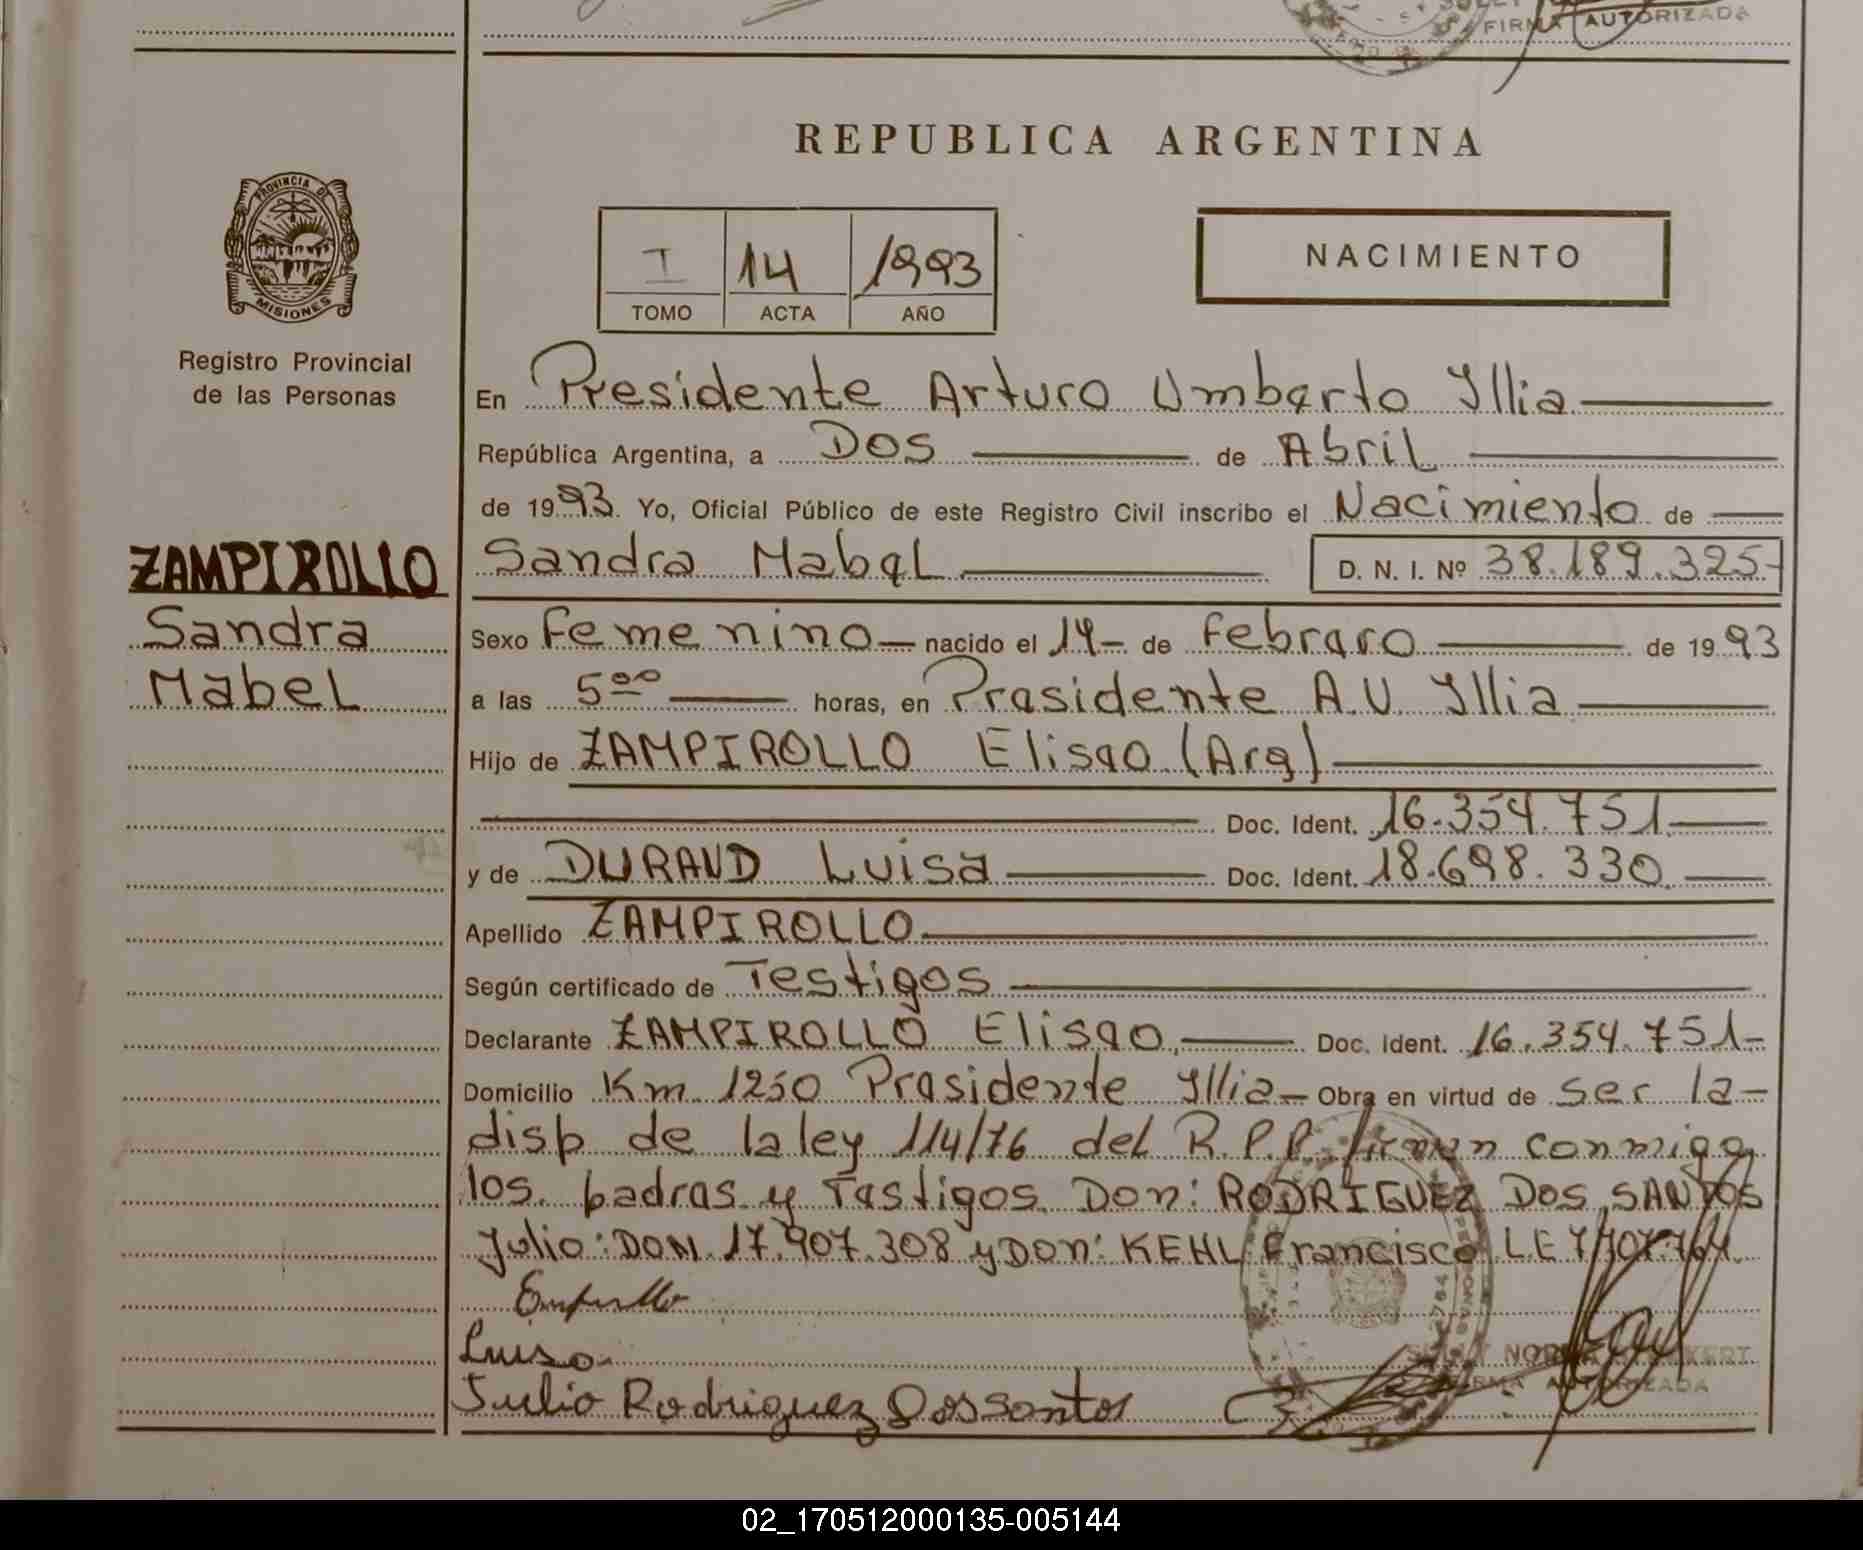 FIRMA AUTORIZADA
REPUBLICA ARGENTINA
PROVINCIA DE
MISIONES
Registro Provincial
de las Personas
I 14 1993
TOMO ACTA AÑO
NACIMIENTO
En Presidente Arturo Umberto Illia
República Argentina, a Dos de Abril
de 1993. Yo, Oficial Público de este Registro Civil inscribo el Nacimiento de
ZAMPIROLLO
Sandra
Mabel
Sandra Mabel D. N. I. Nº 38.189.325-
Sexo Femenino nacido el 14- de Febrero de 1993
a las 5 00 horas, en Presidente A.U. Illia
Hijo de ZAMPIROLLO Eliseo (Arg)
Doc. Ident. 16.354.751.
y de DURAND Luisa Doc. Ident. 18.698.330.
Apellido ZAMPIROLLO
Según certificado de Testigos
Declarante ZAMPIROLLO Eliseo. Doc. Ident. 16.354.751-
Domicilio Km. 1250 Presidente Illia- Obra en virtud de ser la-
disp de la ley 114/76 del R.P.P. firman conmigo
los padres y Testigos Don: RODRIGUEZ DOS SANTOS
Julio: DNI 17.907.308 y Don: KEHL Francisco LE 7.707.764.
Luisa
Julio Rodriguez Dossantos
FIRMA AUTORIZADA
02_170512000135-005144